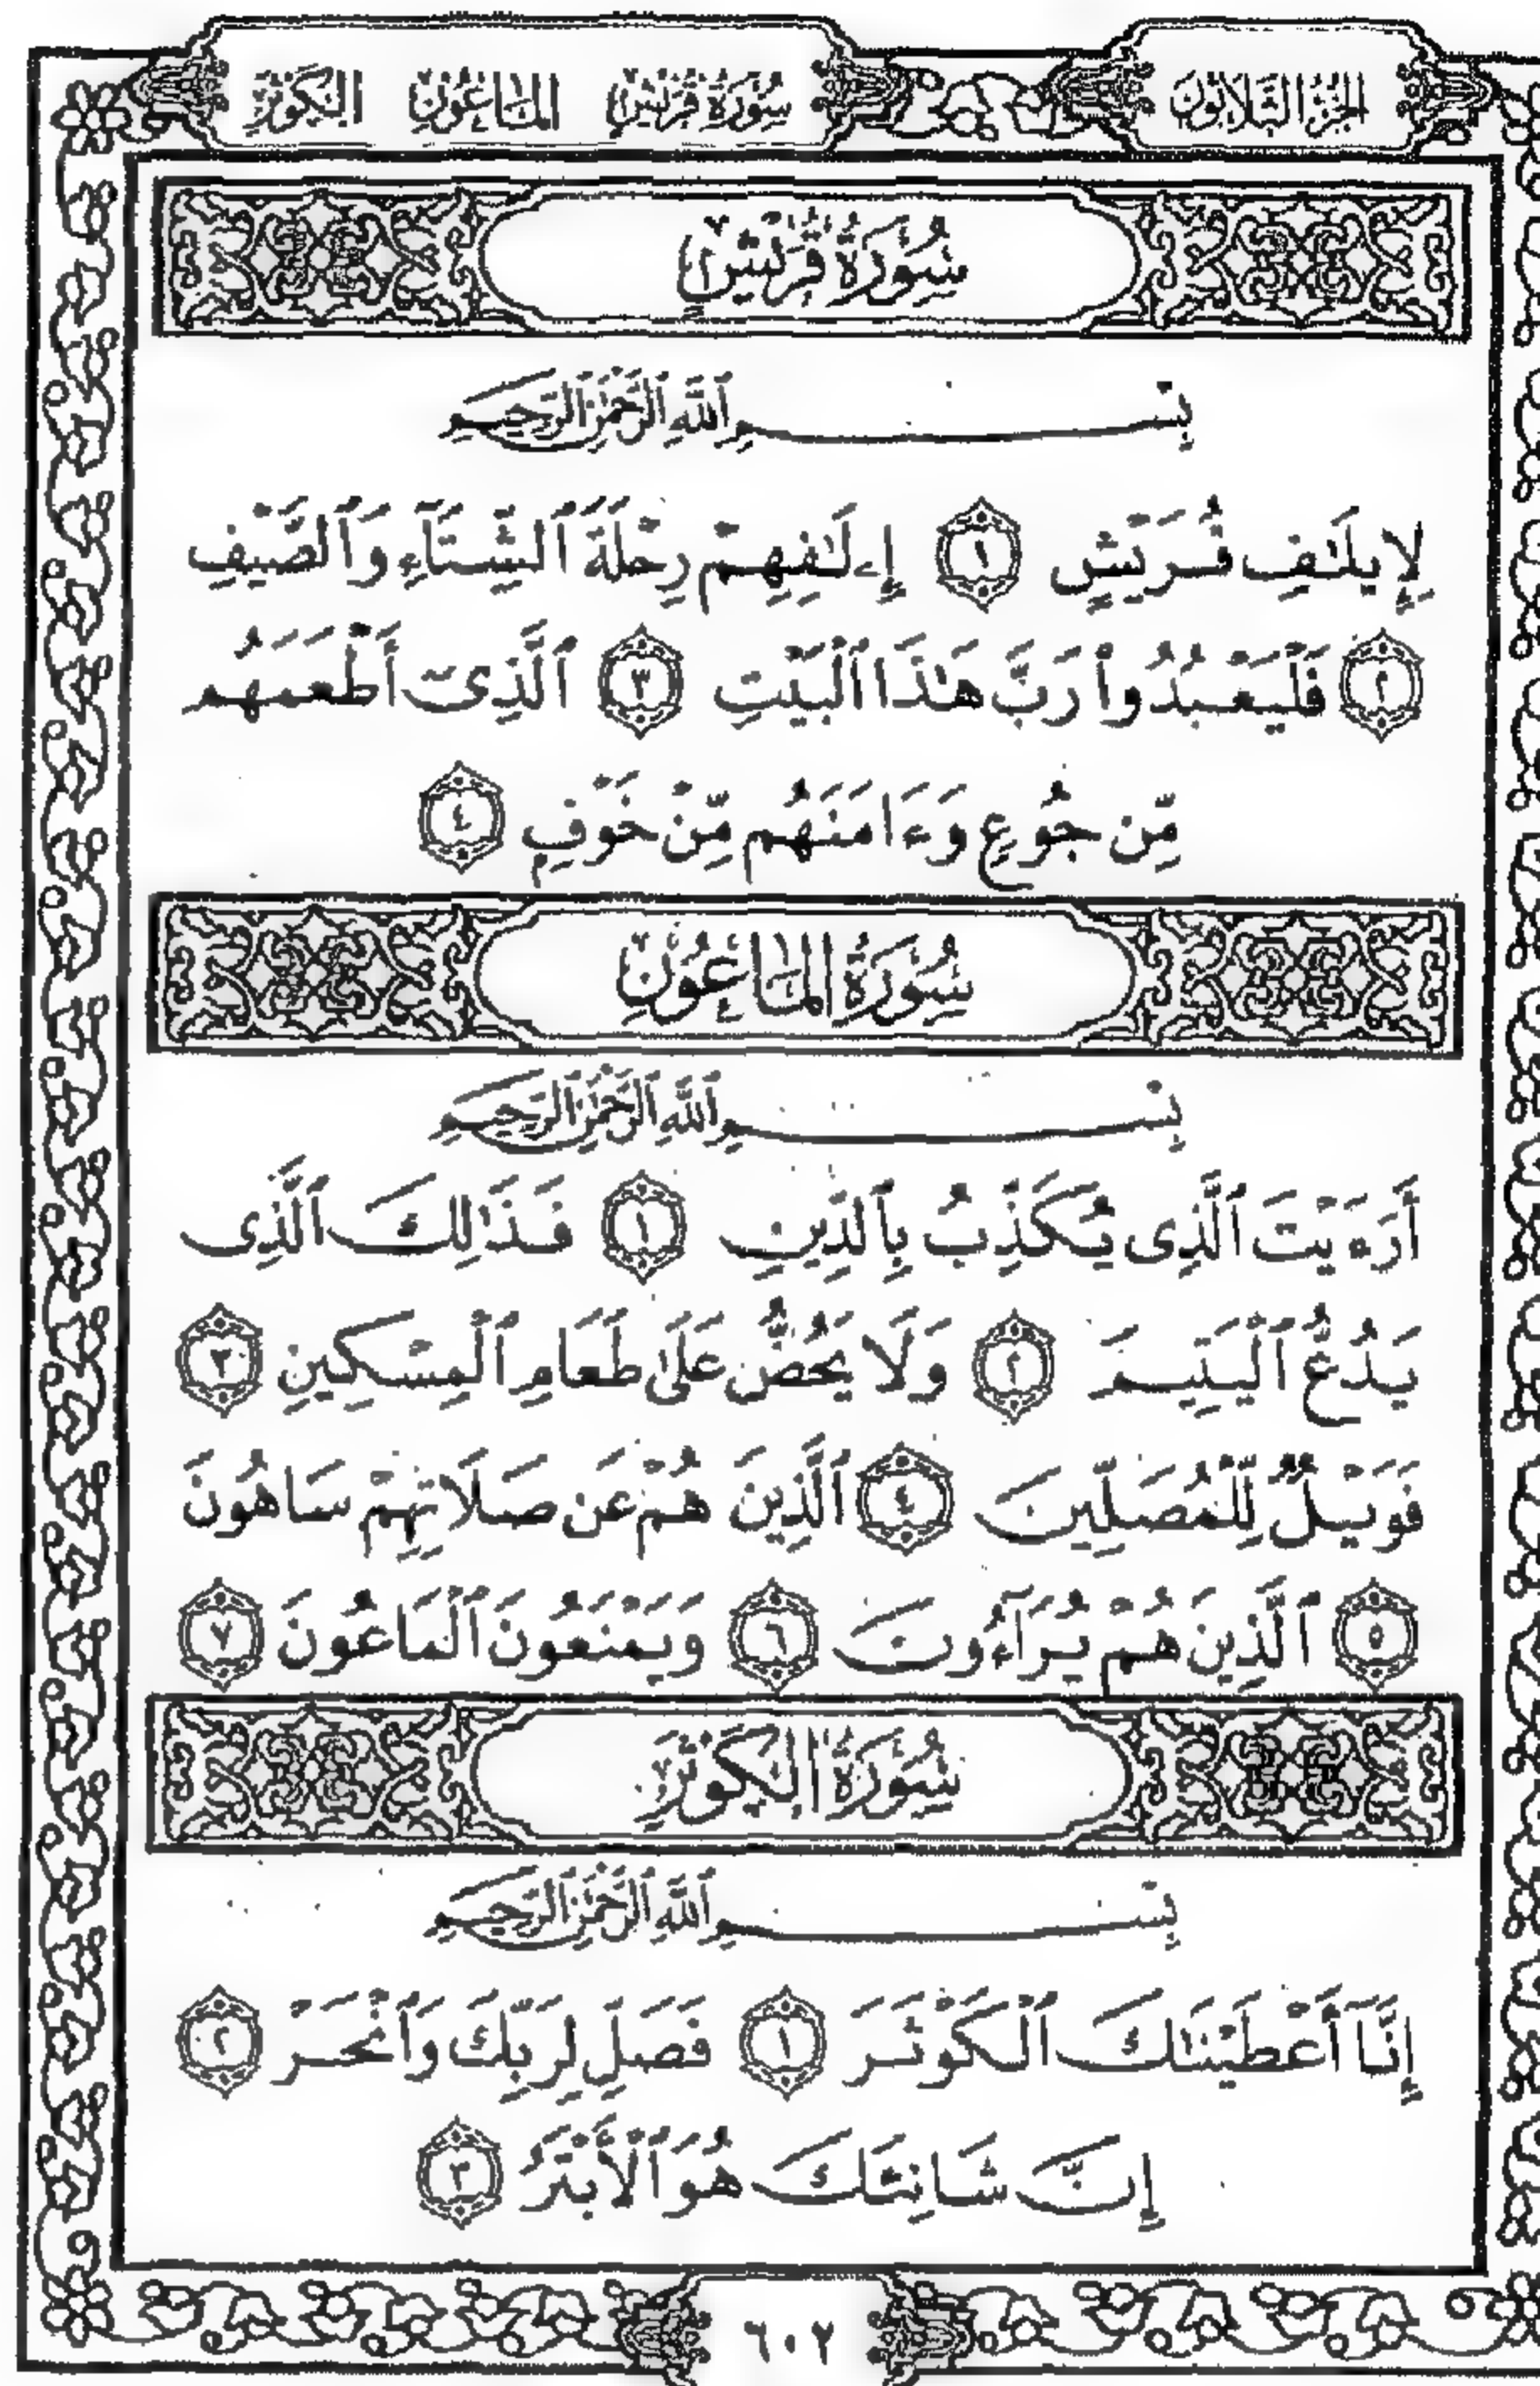 الجزء الثلاثون سورة قريش الماعون الكوثر
سُورَةُ قُرَيْشٍ
بِسْمِ ٱللَّهِ ٱلرَّحْمَٰنِ ٱلرَّحِيمِ
لِإِيلَٰفِ قُرَيْشٍ ١ إِۦلَٰفِهِمْ رِحْلَةَ ٱلشِّتَآءِ وَٱلصَّيْفِ
٢ فَلْيَعْبُدُوا۟ رَبَّ هَٰذَا ٱلْبَيْتِ ٣ ٱلَّذِىٓ أَطْعَمَهُم
مِّن جُوعٍ وَءَامَنَهُم مِّنْ خَوْفٍ ٤
سُورَةُ المَاعُونِ
بِسْمِ ٱللَّهِ ٱلرَّحْمَٰنِ ٱلرَّحِيمِ
أَرَءَيْتَ ٱلَّذِى يُكَذِّبُ بِٱلدِّينِ ١ فَذَٰلِكَ ٱلَّذِى
يَدُعُّ ٱلْيَتِيمَ ٢ وَلَا يَحُضُّ عَلَىٰ طَعَامِ ٱلْمِسْكِينِ ٣
فَوَيْلٌ لِّلْمُصَلِّينَ ٤ ٱلَّذِينَ هُمْ عَن صَلَاتِهِمْ سَاهُونَ
٥ ٱلَّذِينَ هُمْ يُرَآءُونَ ٦ وَيَمْنَعُونَ ٱلْمَاعُونَ ٧
سُورَةُ الكَوْثَرِ
بِسْمِ ٱللَّهِ ٱلرَّحْمَٰنِ ٱلرَّحِيمِ
إِنَّآ أَعْطَيْنَٰكَ ٱلْكَوْثَرَ ١ فَصَلِّ لِرَبِّكَ وَٱنْحَرْ ٢
إِنَّ شَانِئَكَ هُوَ ٱلْأَبْتَرُ ٣
٦٠٢